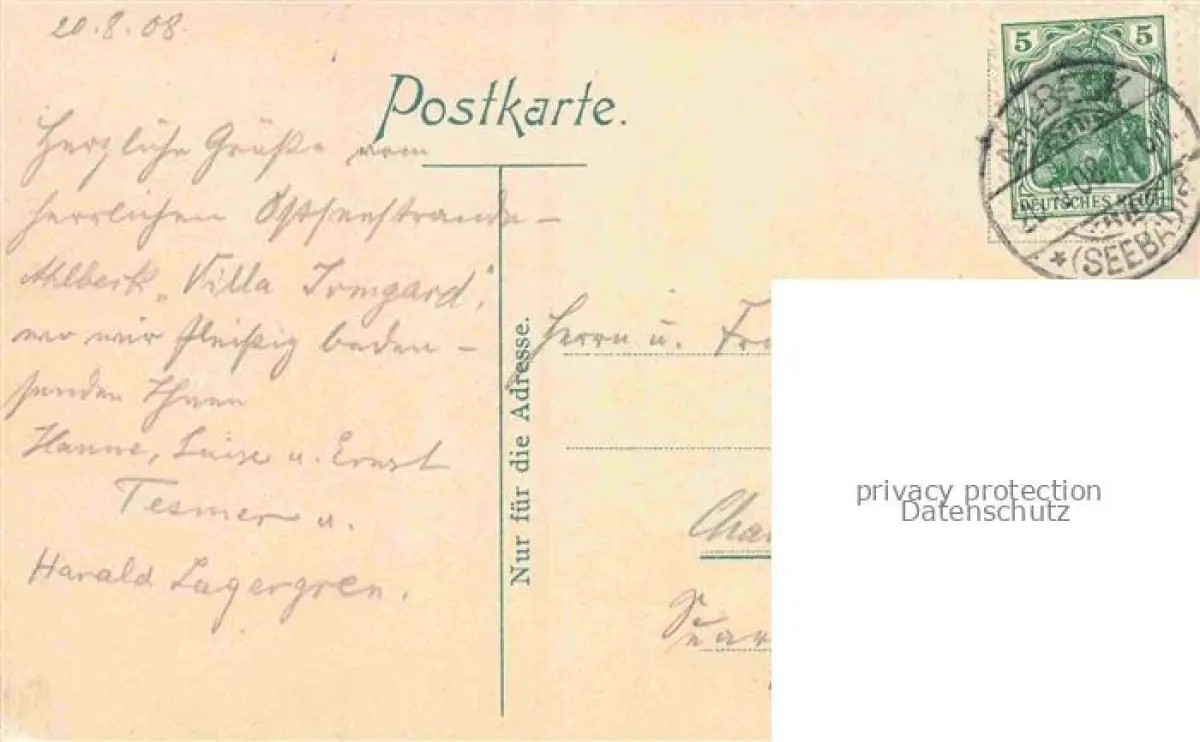 20.8.08.
Postkarte.
5 5
DEUTSCHES REICH
(SEEBAD)
Herzliche Grüße vom
herrlichen Ostseestrande –
Ahlbeck „Villa Irmgard",
wo wir fleißig baden –
senden Ihnen
Hanne, Luise u. Ernst
Tesmer u.
Harald Lagergren.
Nur für die Adresse.
Herrn u.
privacy protection
Datenschutz